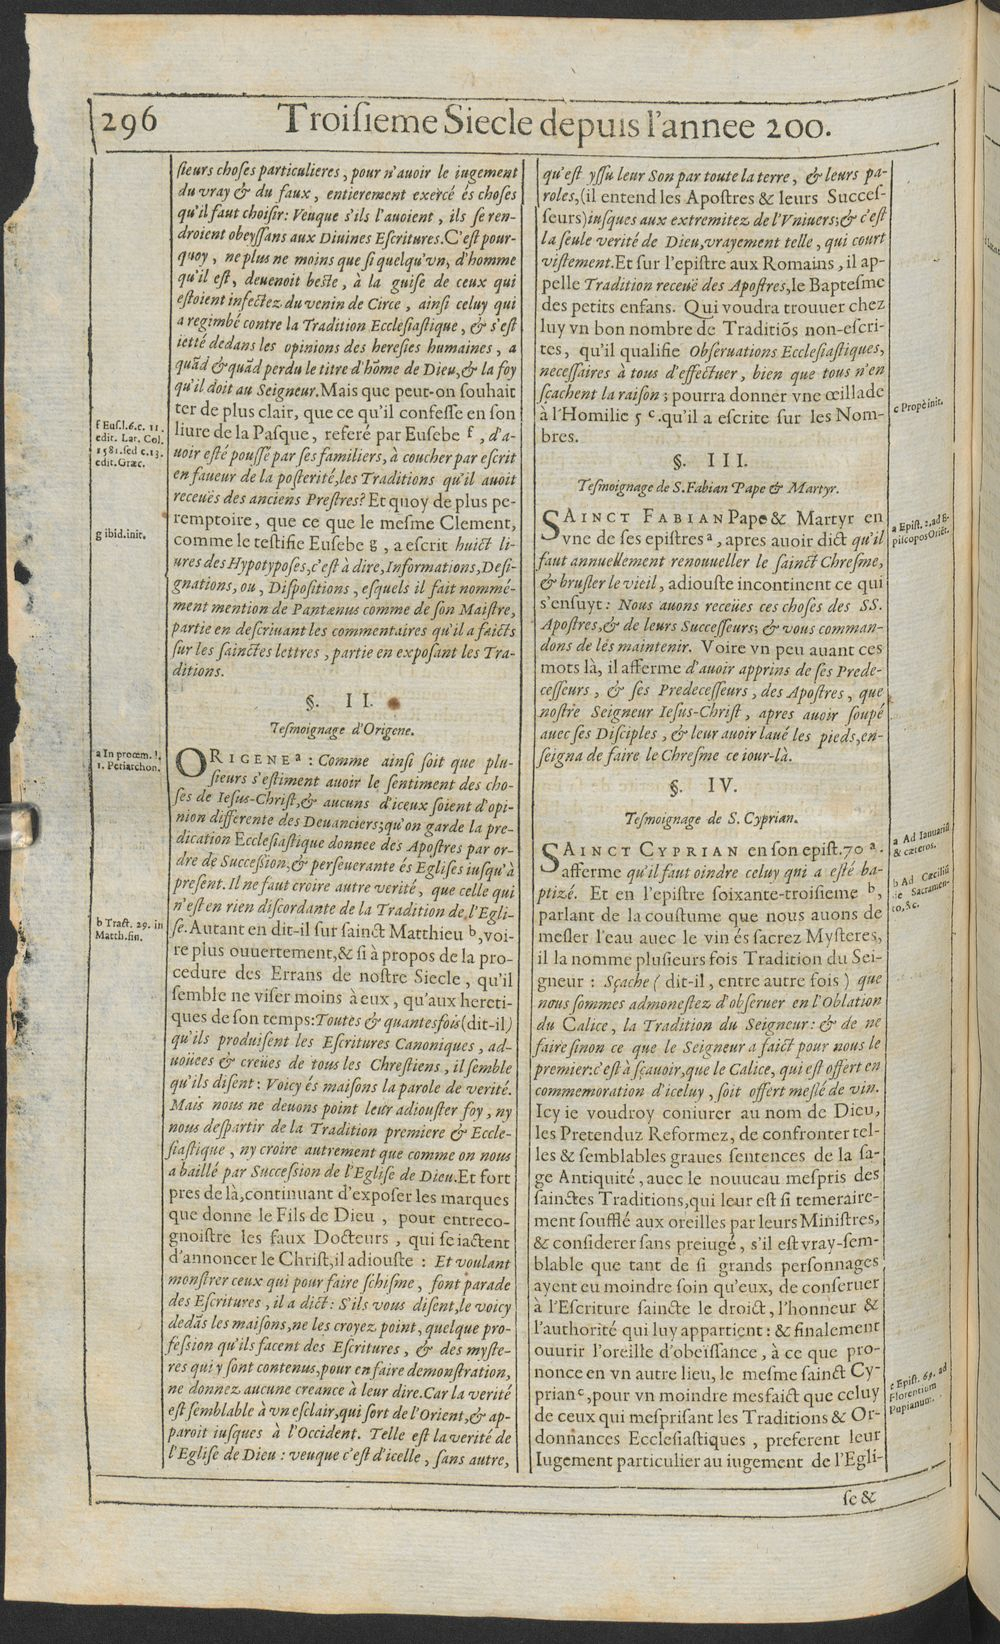 296
Troiſieme Siecle depuis l'annee 200.
ſieurs choſes particulieres, pour n'auoir le iugement
du vray & du faux, entierement exercé és choſes
qu'il faut choiſir: Veuque s'ils l'auoient, ils ſe ren-
droient obeyſſans aux Diuines Eſcritures. C'eſt pour-
quoy, ne plus ne moins que ſi quelqu'vn, d'homme
qu'il eſt, deuenoit beſte, à la guiſe de ceux qui
eſtoient infectez du venin de Circe, ainſi celuy qui
a regimbé contre la Tradition Eccleſiaſtique, & s'eſt
ietté dedans les opinions des hereſies humaines, a
quãd & quãd perdu le titre d'hõme de Dieu, & la foy
qu'il doit au Seigneur. Mais que peut-on ſouhait
ter de plus clair, que ce qu'il confeſſe en ſon
liure de la Paſque, referé par Euſebe f, d'a-
uoir eſté pouſſé par ſes familiers, à coucher par eſcrit
en faueur de la poſterité, les Traditions qu'il auoit
receuës des anciens Preſtres? Et quoy de plus pe-
remptoire, que ce que le meſme Clement,
comme le teſtifie Euſebe g, a eſcrit huict li-
ures des Hypotypoſes, c'eſt à dire, Informations, Deſi-
gnations, ou, Diſpoſitions, eſquels il fait nommé-
ment mention de Pantænus comme de ſon Maiſtre,
partie en deſcriuant les commentaires qu'il a faicts
ſur les ſainctes lettres, partie en expoſant les Tra-
ditions.
§. II.
Teſmoignage d'Origene.
ORIGENE a: Comme ainſi ſoit que plu-
ſieurs s'eſtiment auoir le ſentiment des cho-
ſes de Ieſus-Chriſt, & aucuns d'iceux ſoient d'opi-
nion differente des Deuanciers; qu'on garde la pre-
dication Eccleſiaſtique donnee des Apoſtres par or-
dre de Succeſſion, & perſeuerante és Egliſes iuſqu'à
preſent. Il ne faut croire autre verité, que celle qui
n'eſt en rien diſcordante de la Tradition de l'Egli-
ſe. Autant en dit-il ſur ſainct Matthieu b, voi-
re plus ouuertement, & ſi à propos de la pro-
cedure des Errans de noſtre Siecle, qu'il
ſemble ne viſer moins à eux, qu'aux hereti-
ques de ſon temps: Toutes & quantesfois (dit-il)
qu'ils produiſent les Eſcritures Canoniques, ad-
uoüees & creües de tous les Chreſtiens, il ſemble
qu'ils diſent: Voicy és maiſons la parole de verité.
Mais nous ne deuons point leur adiouſter foy, ny
nous deſpartir de la Tradition premiere & Eccle-
ſiaſtique, ny croire autrement que comme on nous
a baillé par Succeſſion de l'Egliſe de Dieu. Et fort
pres de là, continuant d'expoſer les marques
que donne le Fils de Dieu, pour entreco-
gnoiſtre les faux Docteurs, qui ſe iactent
d'annoncer le Chriſt, il adiouſte: Et voulant
monſtrer ceux qui pour faire ſchiſme, font parade
des Eſcritures, il a dict: S'ils vous diſent, le voicy
dedãs les maiſons, ne les croyez point, quelque pro-
feſſion qu'ils facent des Eſcritures, & des myſte-
res qui y ſont contenus, pour en faire demonſtration,
ne donnez aucune creance à leur dire. Car la verité
eſt ſemblable à vn eſclair, qui ſort de l'Orient, & ap-
paroit iuſques à l'Occident. Telle eſt la verité de
l'Egliſe de Dieu: veuque c'eſt d'icelle, ſans autre,
f Euſ.l.6.c. 11.
edit. Lat. Col.
1581. ſed c.13.
edit. Græc.
g ibid. init.
a In proœm. l.
1. Periarchon.
b Tract. 29. in
Matth. fin.
qu'eſt yſſu leur Son par toute la terre, & leurs pa-
roles, (il entend les Apoſtres & leurs Succeſ-
ſeurs) iuſques aux extremitez de l'Vniuers; & c'eſt
la ſeule verité de Dieu, vrayement telle, qui court
viſtement. Et ſur l'epiſtre aux Romains, il ap-
pelle Tradition receuë des Apoſtres, le Bapteſme
des petits enfans. Qui voudra trouuer chez
luy vn bon nombre de Traditiõs non-eſcri-
tes, qu'il qualifie Obſeruations Eccleſiaſtiques,
neceſſaires à tous d'effectuer, bien que tous n'en
ſçachent la raiſon; pourra donner vne œillade
à l'Homilie 5 c. qu'il a eſcrite ſur les Nom-
bres.
§. III.
Teſmoignage de S. Fabian Pape & Martyr.
SAINCT FABIAN Pape & Martyr en
vne de ſes epiſtres a, apres auoir dict qu'il
faut annuellement renouueller le ſainct Chreſme,
& bruſler le vieil, adiouſte incontinent ce qui
s'enſuyt: Nous auons receües ces choſes des SS.
Apoſtres, & de leurs Succeſſeurs; & vous comman-
dons de les maintenir. Voire vn peu auant ces
mots là, il afferme d'auoir apprins de ſes Prede-
ceſſeurs, & ſes Predeceſſeurs, des Apoſtres, que
noſtre Seigneur Ieſus-Chriſt, apres auoir ſoupé
auec ſes Diſciples, & leur auoir laué les pieds, en-
ſeigna de faire le Chreſme ce iour-là.
§. IV.
Teſmoignage de S. Cyprian.
SAINCT CYPRIAN en ſon epiſt. 70 a.
afferme qu'il faut oindre celuy qui a eſté ba-
ptizé. Et en l'epiſtre ſoixante-troiſieme b,
parlant de la couſtume que nous auons de
meſler l'eau auec le vin és ſacrez Myſteres,
il la nomme pluſieurs fois Tradition du Sei-
gneur: Sçache (dit-il, entre autre fois) que
nous ſommes admoneſtez d'obſeruer en l'Oblation
du Calice, la Tradition du Seigneur: & de ne
faire ſinon ce que le Seigneur a faict pour nous le
premier: c'eſt à ſçauoir, que le Calice, qui eſt offert en
commemoration d'iceluy, ſoit offert meſlé de vin.
Icy ie voudroy coniurer au nom de Dieu,
les Pretenduz Reformez, de confronter tel-
les & ſemblables graues ſentences de la ſa-
ge Antiquité, auec le nouueau meſpris des
ſainctes Traditions, qui leur eſt ſi temeraire-
ment ſoufflé aux oreilles par leurs Miniſtres,
& conſiderer ſans preiugé, s'il eſt vray-ſem-
blable que tant de ſi grands perſonnages
ayent eu moindre ſoin qu'eux, de conſeruer
à l'Eſcriture ſaincte le droict, l'honneur &
l'authorité qui luy appartient: & finalement
ouurir l'oreille d'obeïſſance, à ce que pro-
nonce en vn autre lieu, le meſme ſainct Cy-
prian c, pour vn moindre mesfaict que celuy
de ceux qui meſpriſant les Traditions & Or-
donnances Eccleſiaſtiques, preferent leur
Iugement particulier au iugement de l'Egli-
c Propè init.
a Epiſt. 2. ad E-
piſcopos Oriẽt.
a Ad Ianuariũ
& cæteros.
b Ad Cæciliũ
de Sacramen-
to, &c.
c Epiſt. 69. ad
Florentium
Pupianum.
ſe &